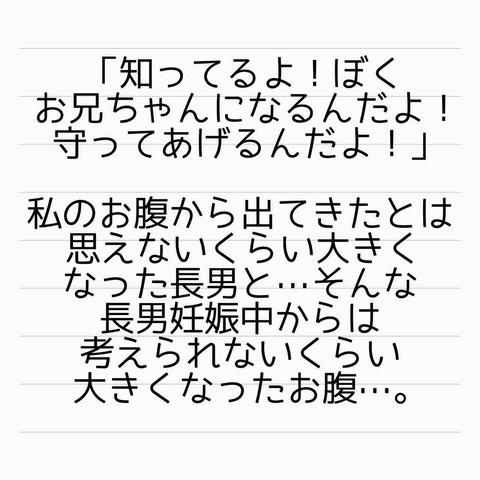 「知ってるよ！ぼく
お兄ちゃんになるんだよ！
守ってあげるんだよ！」
私のお腹から出てきたとは
思えないくらい大きく
なった長男と…そんな
長男妊娠中からは
考えられないくらい
大きくなったお腹…。